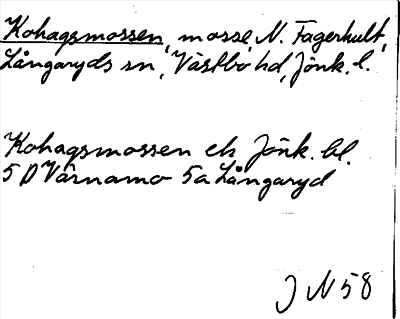 Kohagsmossen, mosse, N. Fagerhult,
Långaryds sn, Västbo hd, Jönk. l.
Kohagsmossen ek Jönk. bl.
5 D Värnamo 5a Långaryd
J N 58